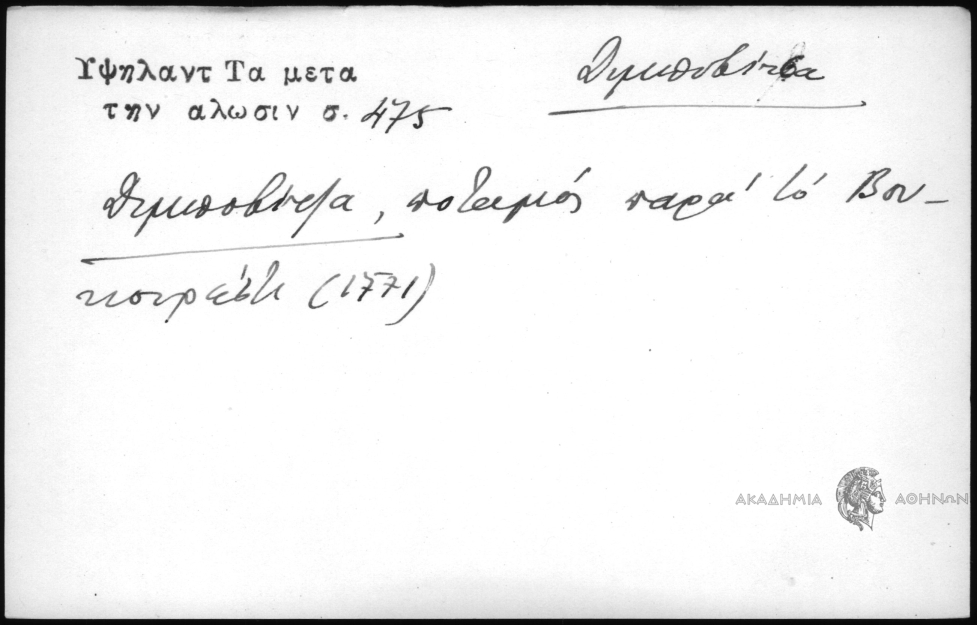 Υψηλαντ Τα μετα
την αλωσιν σ. 475
Διμποβίτσα
Διμποβίτζα, ποταμός παρά τό Βου-
κουρέστι (1771)
ΑΚΑΔΗΜΙΑ ΑΘΗΝΩΝ